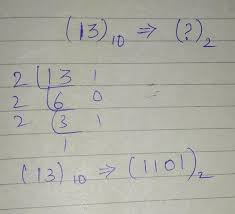 (13)₁₀ ⇒ (?)₂
2 | 13 1
2 | 6 0
2 | 3 1
1
(13)₁₀ ⇒ (1101)₂